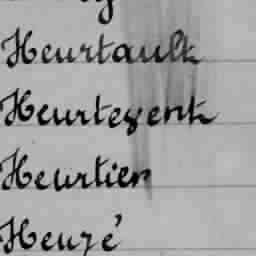 Heurtault
Heurtevent
Heurtier
Heuzé